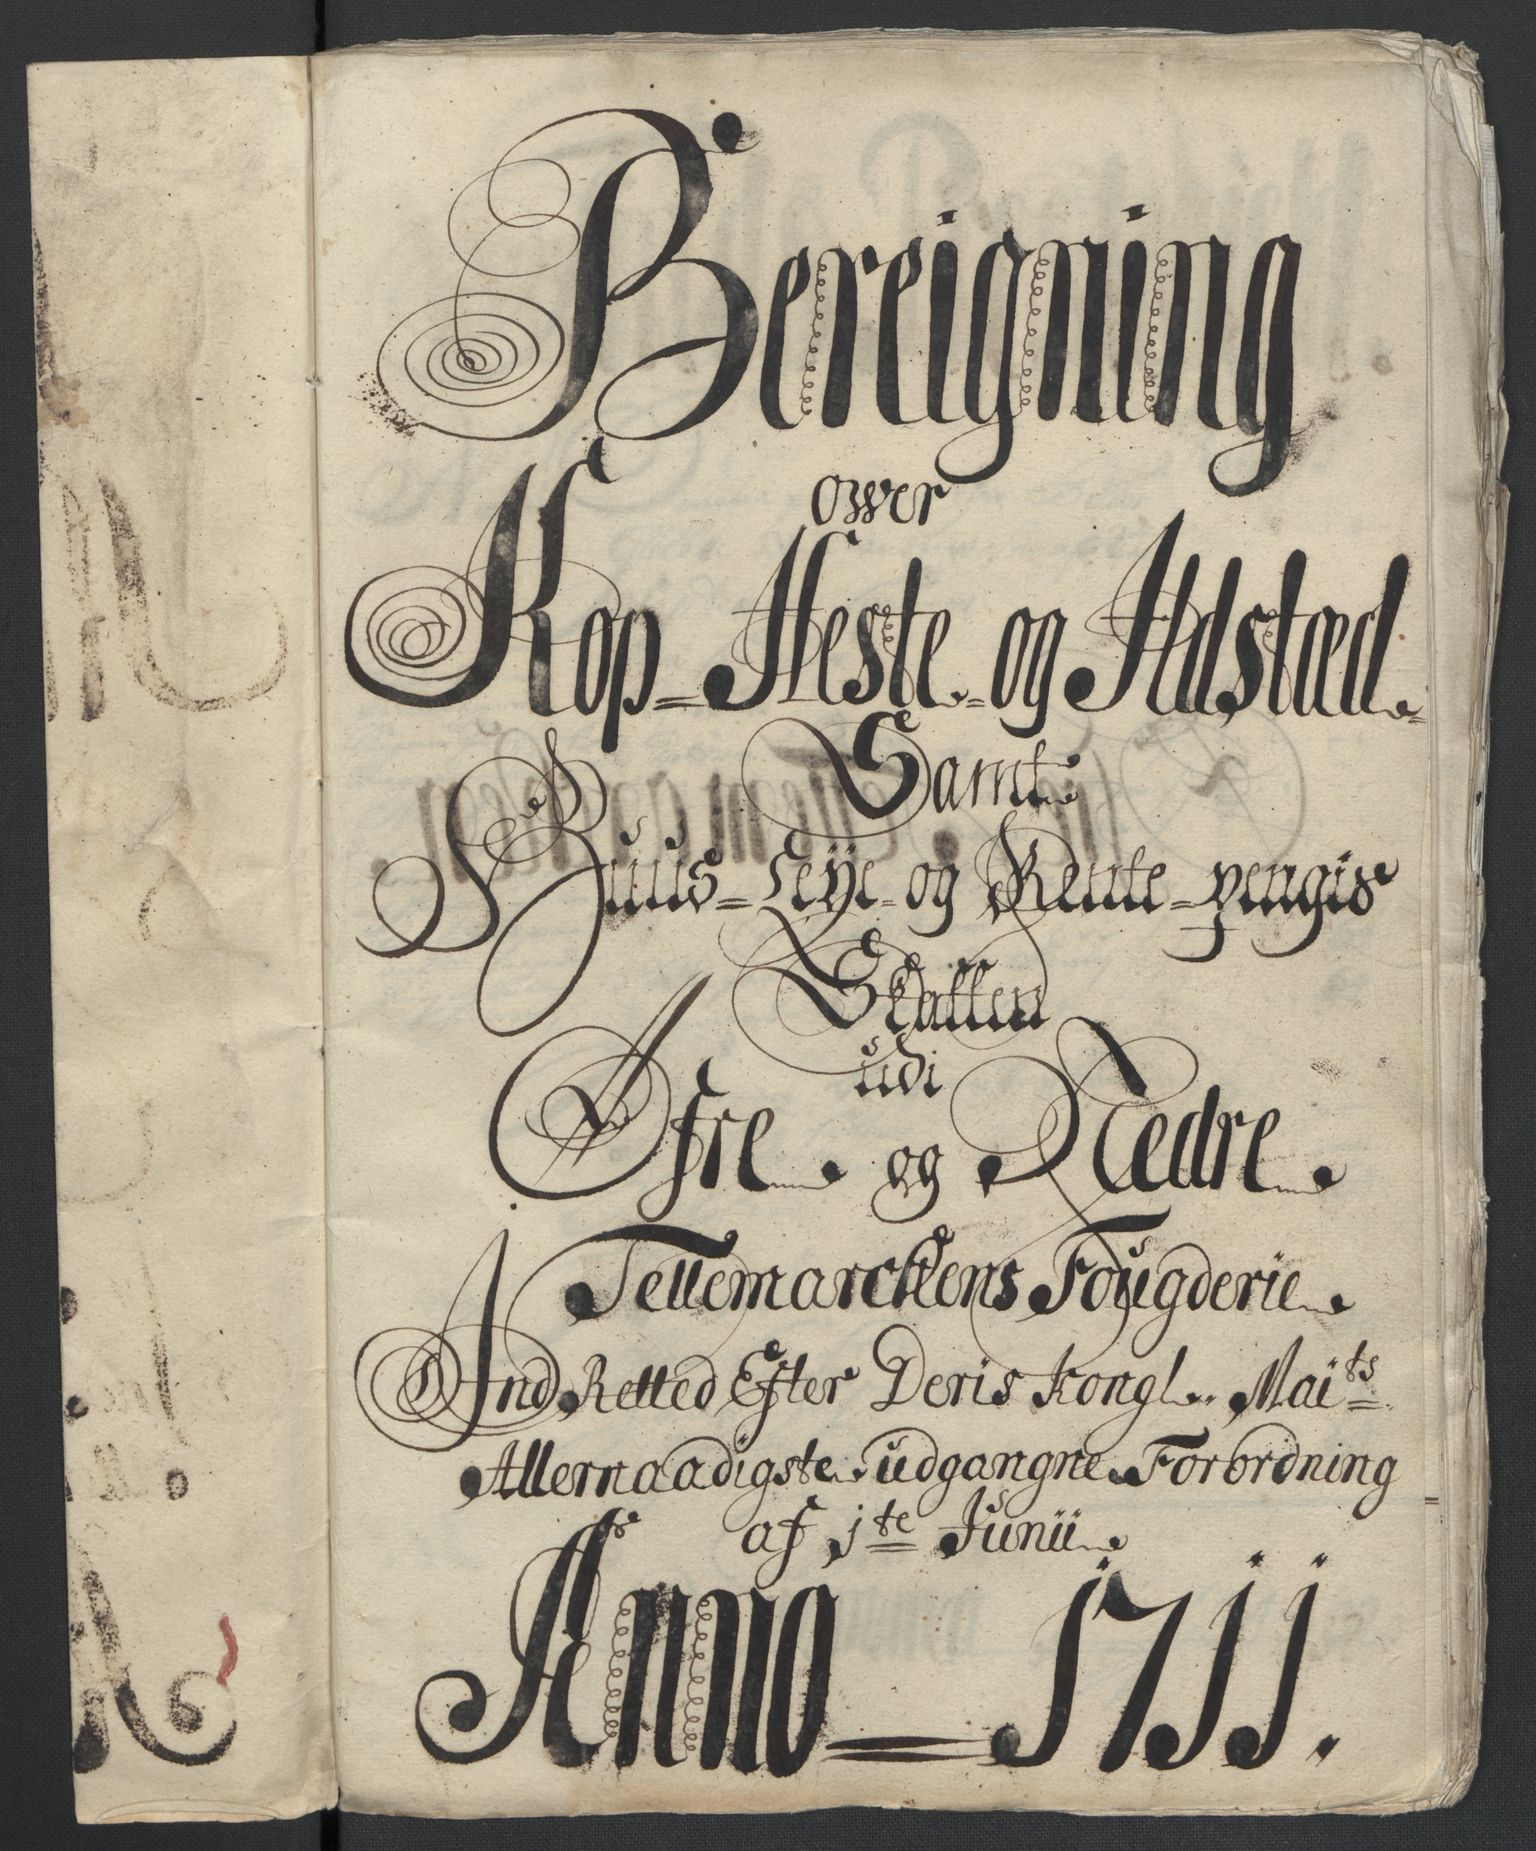 Bereigning
over
Kop- Heste- og Ildstæd
Samt
Huus-Leye- og Rente-pengis
Skatten
udi
Øfre og Nedre
Tellemarckens Fougderie
Ind Retted Efter Deris Kongl. Maits
Allernaadigste udgangne Forordning
af 1te Junii
Anno 1711.